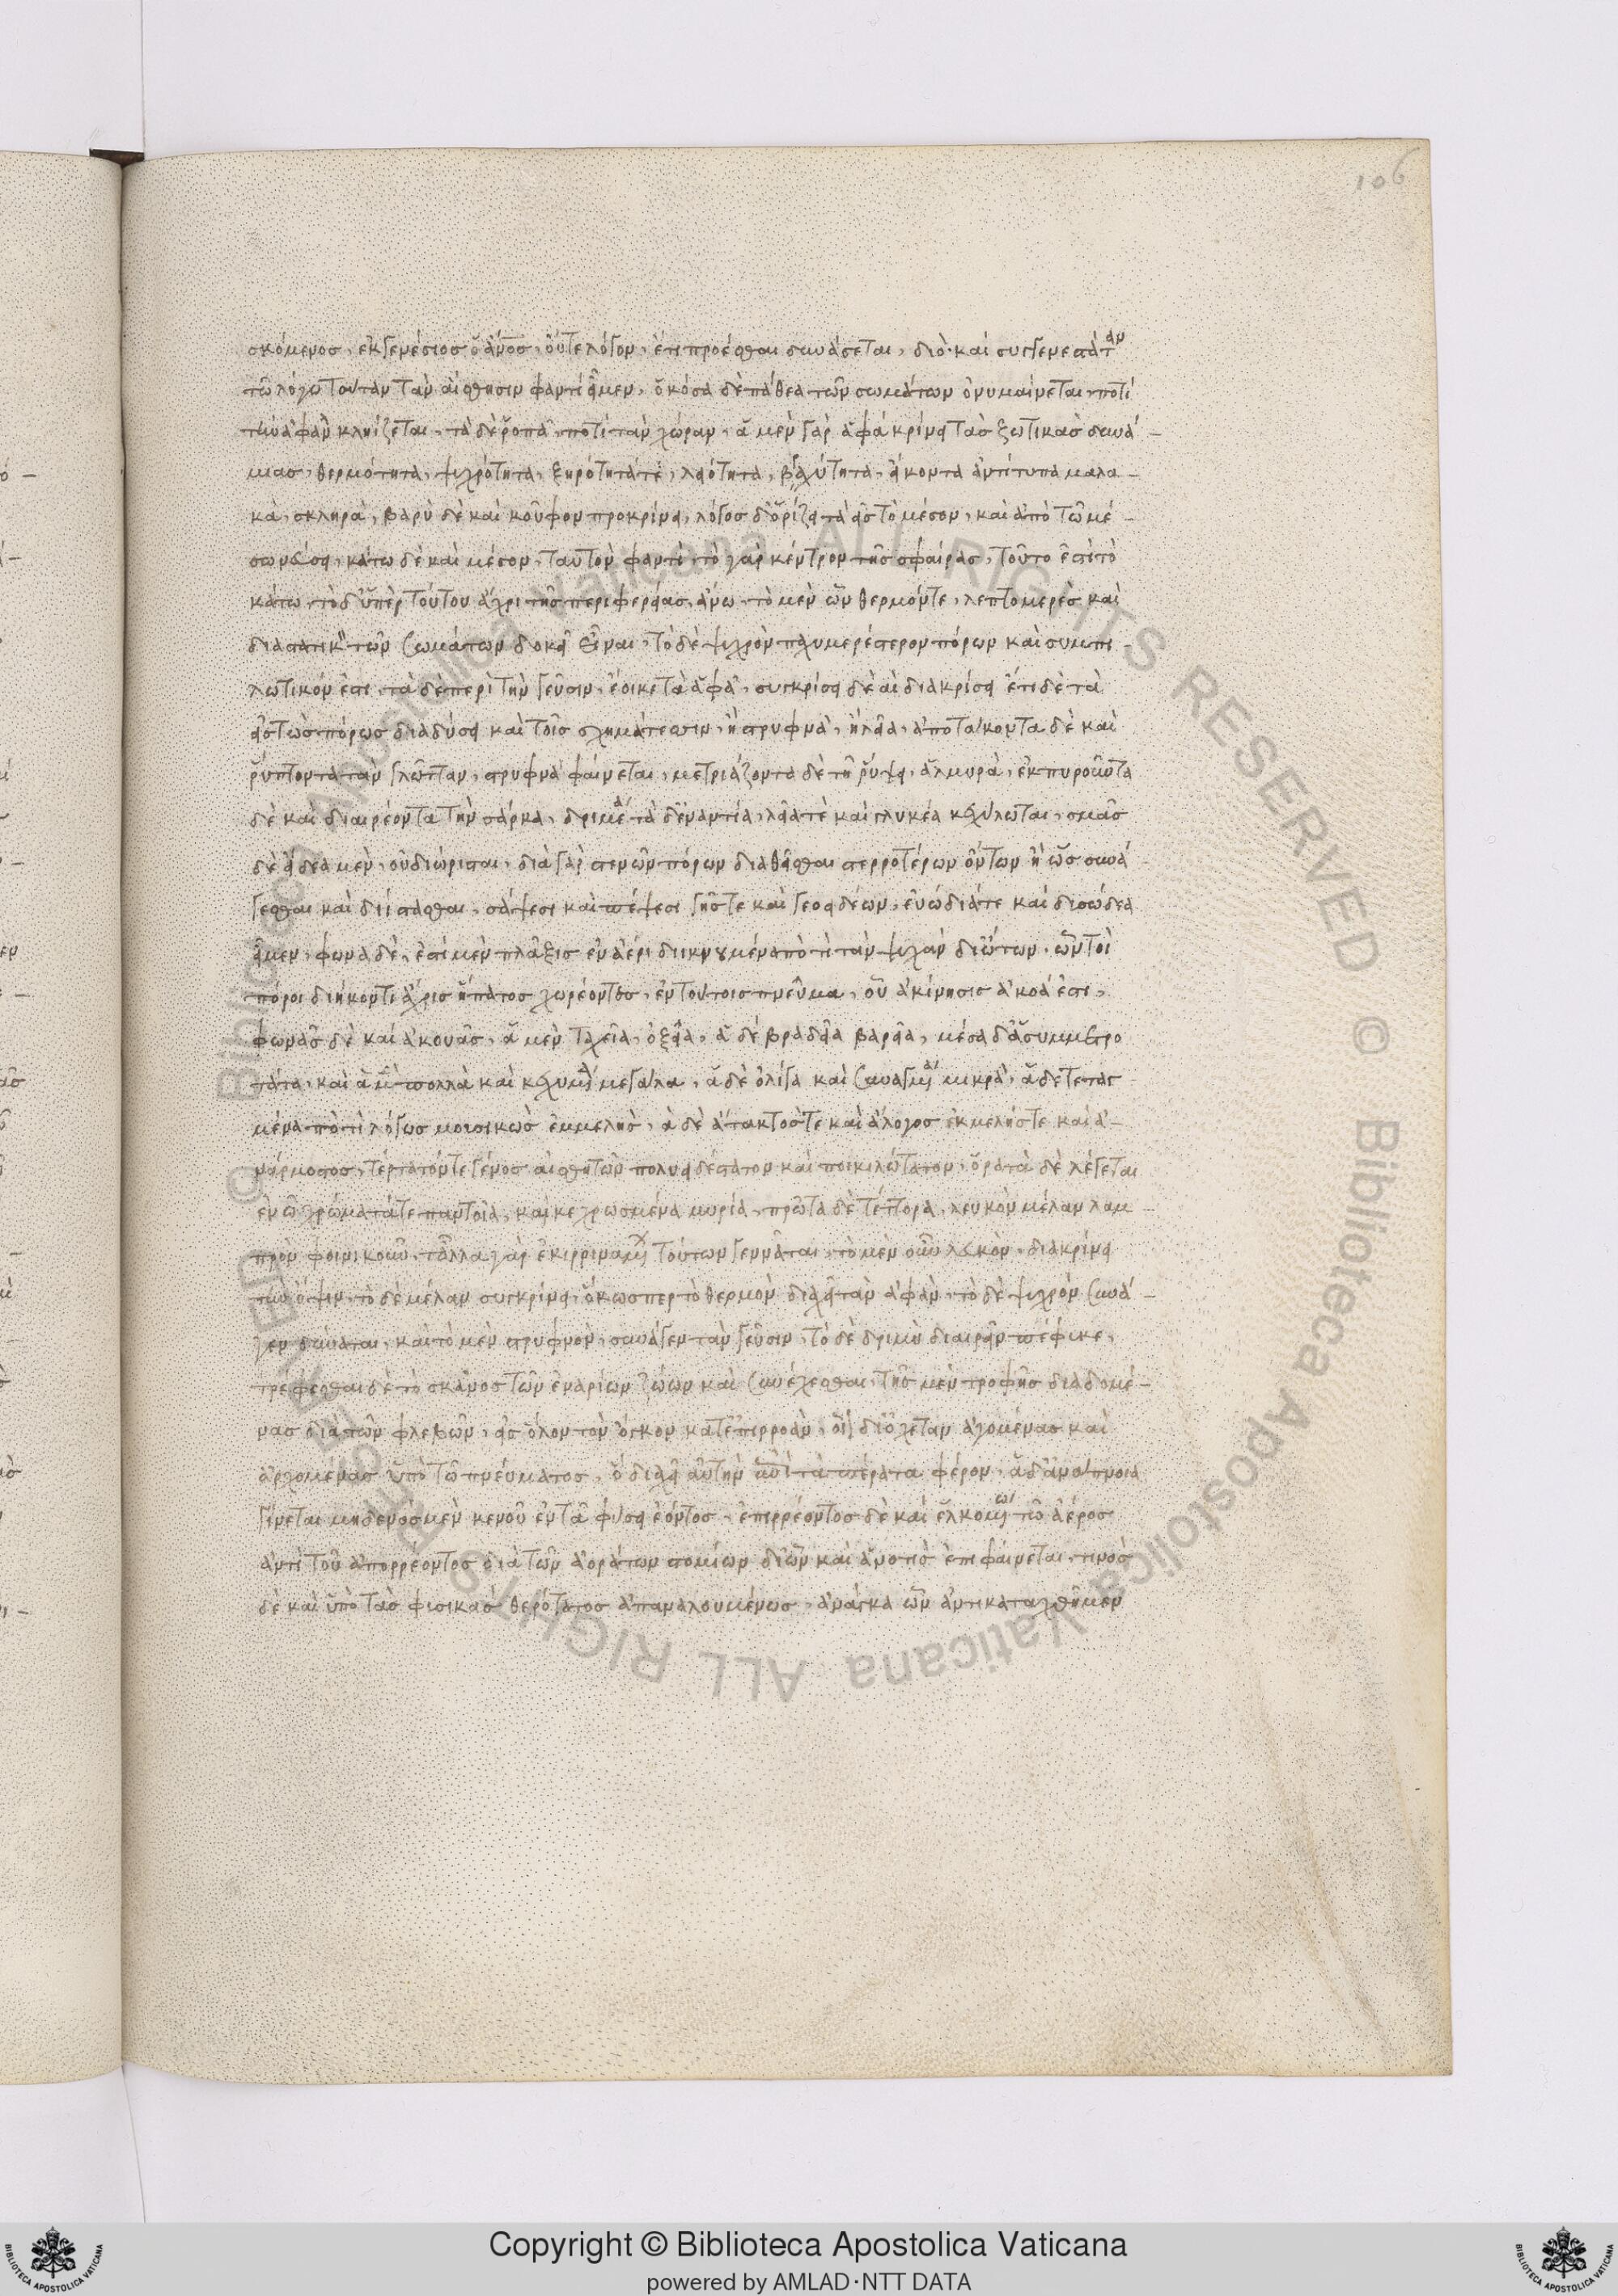 106
σκόμενος, ἐκ γενέσιος ὁ ἄνος, οὔτε λόγον, ἔτι προέσθαι δυνάσεται, διὸ καὶ συγγενεστάταν
τῶ λόγω ταύταν τὰν αἴσθησιν φαντὶ εἶμεν, ὁκόσα δὲ πάθεα τῶν σωμάτων ὀνυμαίνεται, ποτὶ
τὴν ἁφὰν κληίζεται, τὰ δὲ ῥοπᾶ, ποτὶ τὰν χώραν, ἁ μὲν γὰρ ἁφὰ κρίνει τὰς ζωτικὰς δυνά-
μιας, θερμότητα, ψυχρότητα, ξηρότητά τε, λειότητα, τραχύτητα, εἴκοντα ἀντίτυπα μαλα-
κὰ, σκληρὰ, βαρὺ δὲ καὶ κοῦφον προκρίνει, λόγος δ' ὁρίζει τὰ εἰς τὸ μέσον, καὶ ἀπὸ τῶ μέ-
σω νεύσει, κάτω δὲ καὶ μέσον, ταυτὸν φαντὶ, τὸ γὰρ κέντρον τῆς σφαίρας, τοῦτο ἐστὶ τὸ
κάτω, τὸ δ' ὑπὲρ τούτου ἄχρι τῆς περιφερείας, ἄνω, τὸ μὲν ὦν θερμόν τε, λεπτομερὲς καὶ
διαστατικὸν τῶν σωμάτων δοκεῖ εἶναι, τὸ δὲ ψυχρὸν παχυμερέστερον πόρων καὶ συμπι-
λωτικόν ἐστι, τὰ δὲ περὶ τὴν γεῦσιν, ἔοικε τᾷ ἁφᾷ, συγκρίσει δὲ αἱ διακρίσει ἔτι δὲ τὰ
εἰς τὼς πόρως διαδύσει καὶ τοῖς σχημάτεσσιν, ἢ στρυφνὰ, ἢ λεῖα, ἀποτάκοντα δὲ καὶ
ῥύπτοντα τὰν γλῶτταν, στρυφνὰ φαίνεται, μετριάζοντα δὲ τῇ ῥύψει, ἁλμυρὰ, ἐκπυροῦντα
δὲ καὶ διαιρέοντα τὴν σάρκα, δριμέα τὰ δ' ἐναντία, λεῖά τε καὶ γλυκέα κεχύλωται, ὀσμᾶς
δὲ εἴδεα μὲν, οὐ διώρισται, διὰ γὰρ στενῶν πόρων διαθεῖσθαι στερροτέρων ὄντων ἢ ὡς συνά-
γεσθαι καὶ διίστασθαι, σάψεσι καὶ πέψεσι γῆς τε καὶ γεοειδέων, εὐώδιά τε καὶ δυσώδεα
εἶμεν, φωνὰ δὲ, ἐστὶ μὲν πλᾶξις ἐν ἀέρι διικνουμένα ποτὶ τὰν ψυχὰν δι' ὤτων, ὧν τοὶ
πόροι διήκοντι ἄχρις ἥπατος χωρέοντες, ἐν τούτοις πνεῦμα, οὗ ἁ κίνησις ἀκοά ἐστι,
φωνᾶς δὲ καὶ ἀκουᾶς, ἁ μὲν ταχεῖα, ὀξεῖα, ἁ δὲ βραδεῖα βαρεῖα, μέσα δ' ἁ συμμετρο-
τάτα, καὶ ἁ μὲν πολλὰ καὶ κεχυμένα μεγάλα, ἁ δὲ ὀλίγα καὶ συναγμένα μικρὰ, ἁ δὲ τεταγ-
μένα ποτὶ λόγως μουσικὼς ἐμμελὴς, ἁ δὲ ἄτακτός τε καὶ ἄλογος ἐκμελής τε καὶ ἀ-
νάρμοστος, τέτατόν τε γένος αἰσθητῶν πολυειδέστατον καὶ ποικιλώτατον, ὁρατὰ δὲ λέγεται
ἐν ᾧ χρώματά τε παντοῖα, καὶ κεχρωσμένα μυρία, πρᾶτα δὲ τέττορα, λευκὸν μέλαν λαμ-
πρὸν φοινικοῦν, τἆλλα γὰρ ἐκ κιρναμένων τούτων γεννᾶται, τὸ μὲν οὖν λευκὸν, διακρίνει
τὴν ὄψιν, τὸ δὲ μέλαν συγκρίνει, ὅκωσπερ τὸ θερμὸν διαχεῖ τὰν ἁφὰν, τὸ δὲ ψυχρὸν συνά-
γεν δύναται, καὶ τὸ μὲν στρυφνὸν, συνάγεν τὰν γεῦσιν, τὸ δὲ δριμὺ διαιρεῖν πέφυκε,
τρέφεσθαι δὲ τὸ σκᾶνος τῶν ἐναερίων ζώων καὶ συνέχεσθαι, τῆς μὲν τροφῆς διαδομέ-
νας διὰ τῶν φλεβῶν, εἰς ὅλον τὸν ὄγκον κατ' ἐπιρροὰν, οἷον δι' ὀχετῶν ἀγομένας καὶ
ἀρχομένας ὑπὸ τῶ πνεύματος, ὃ διαχεῖ αὐτὴν ἐπὶ τὰ πέρατα φέρον, ἁ δ' ἀναπνοιὰ
γίνεται μηδενὸς μὲν κενοῦ ἐν τᾷ φύσει ἐόντος, ἐπιρρέοντος δὲ καὶ ἑλκομένω τῶ ἀέρος
ἀντὶ τοῦ ἀπορρέοντος διὰ τῶν ἀοράτων στομίων δι' ὧν καὶ ἁ νοτὶς ἐπιφαίνεται, τινὸς
δὲ καὶ ὑπὸ τᾶς φυσικᾶς θερότατος ἀπαναλουμένως, ἀνάγκα ὦν ἀντικαταχθῆμεν
Copyright © Biblioteca Apostolica Vaticana
powered by AMLAD·NTT DATA